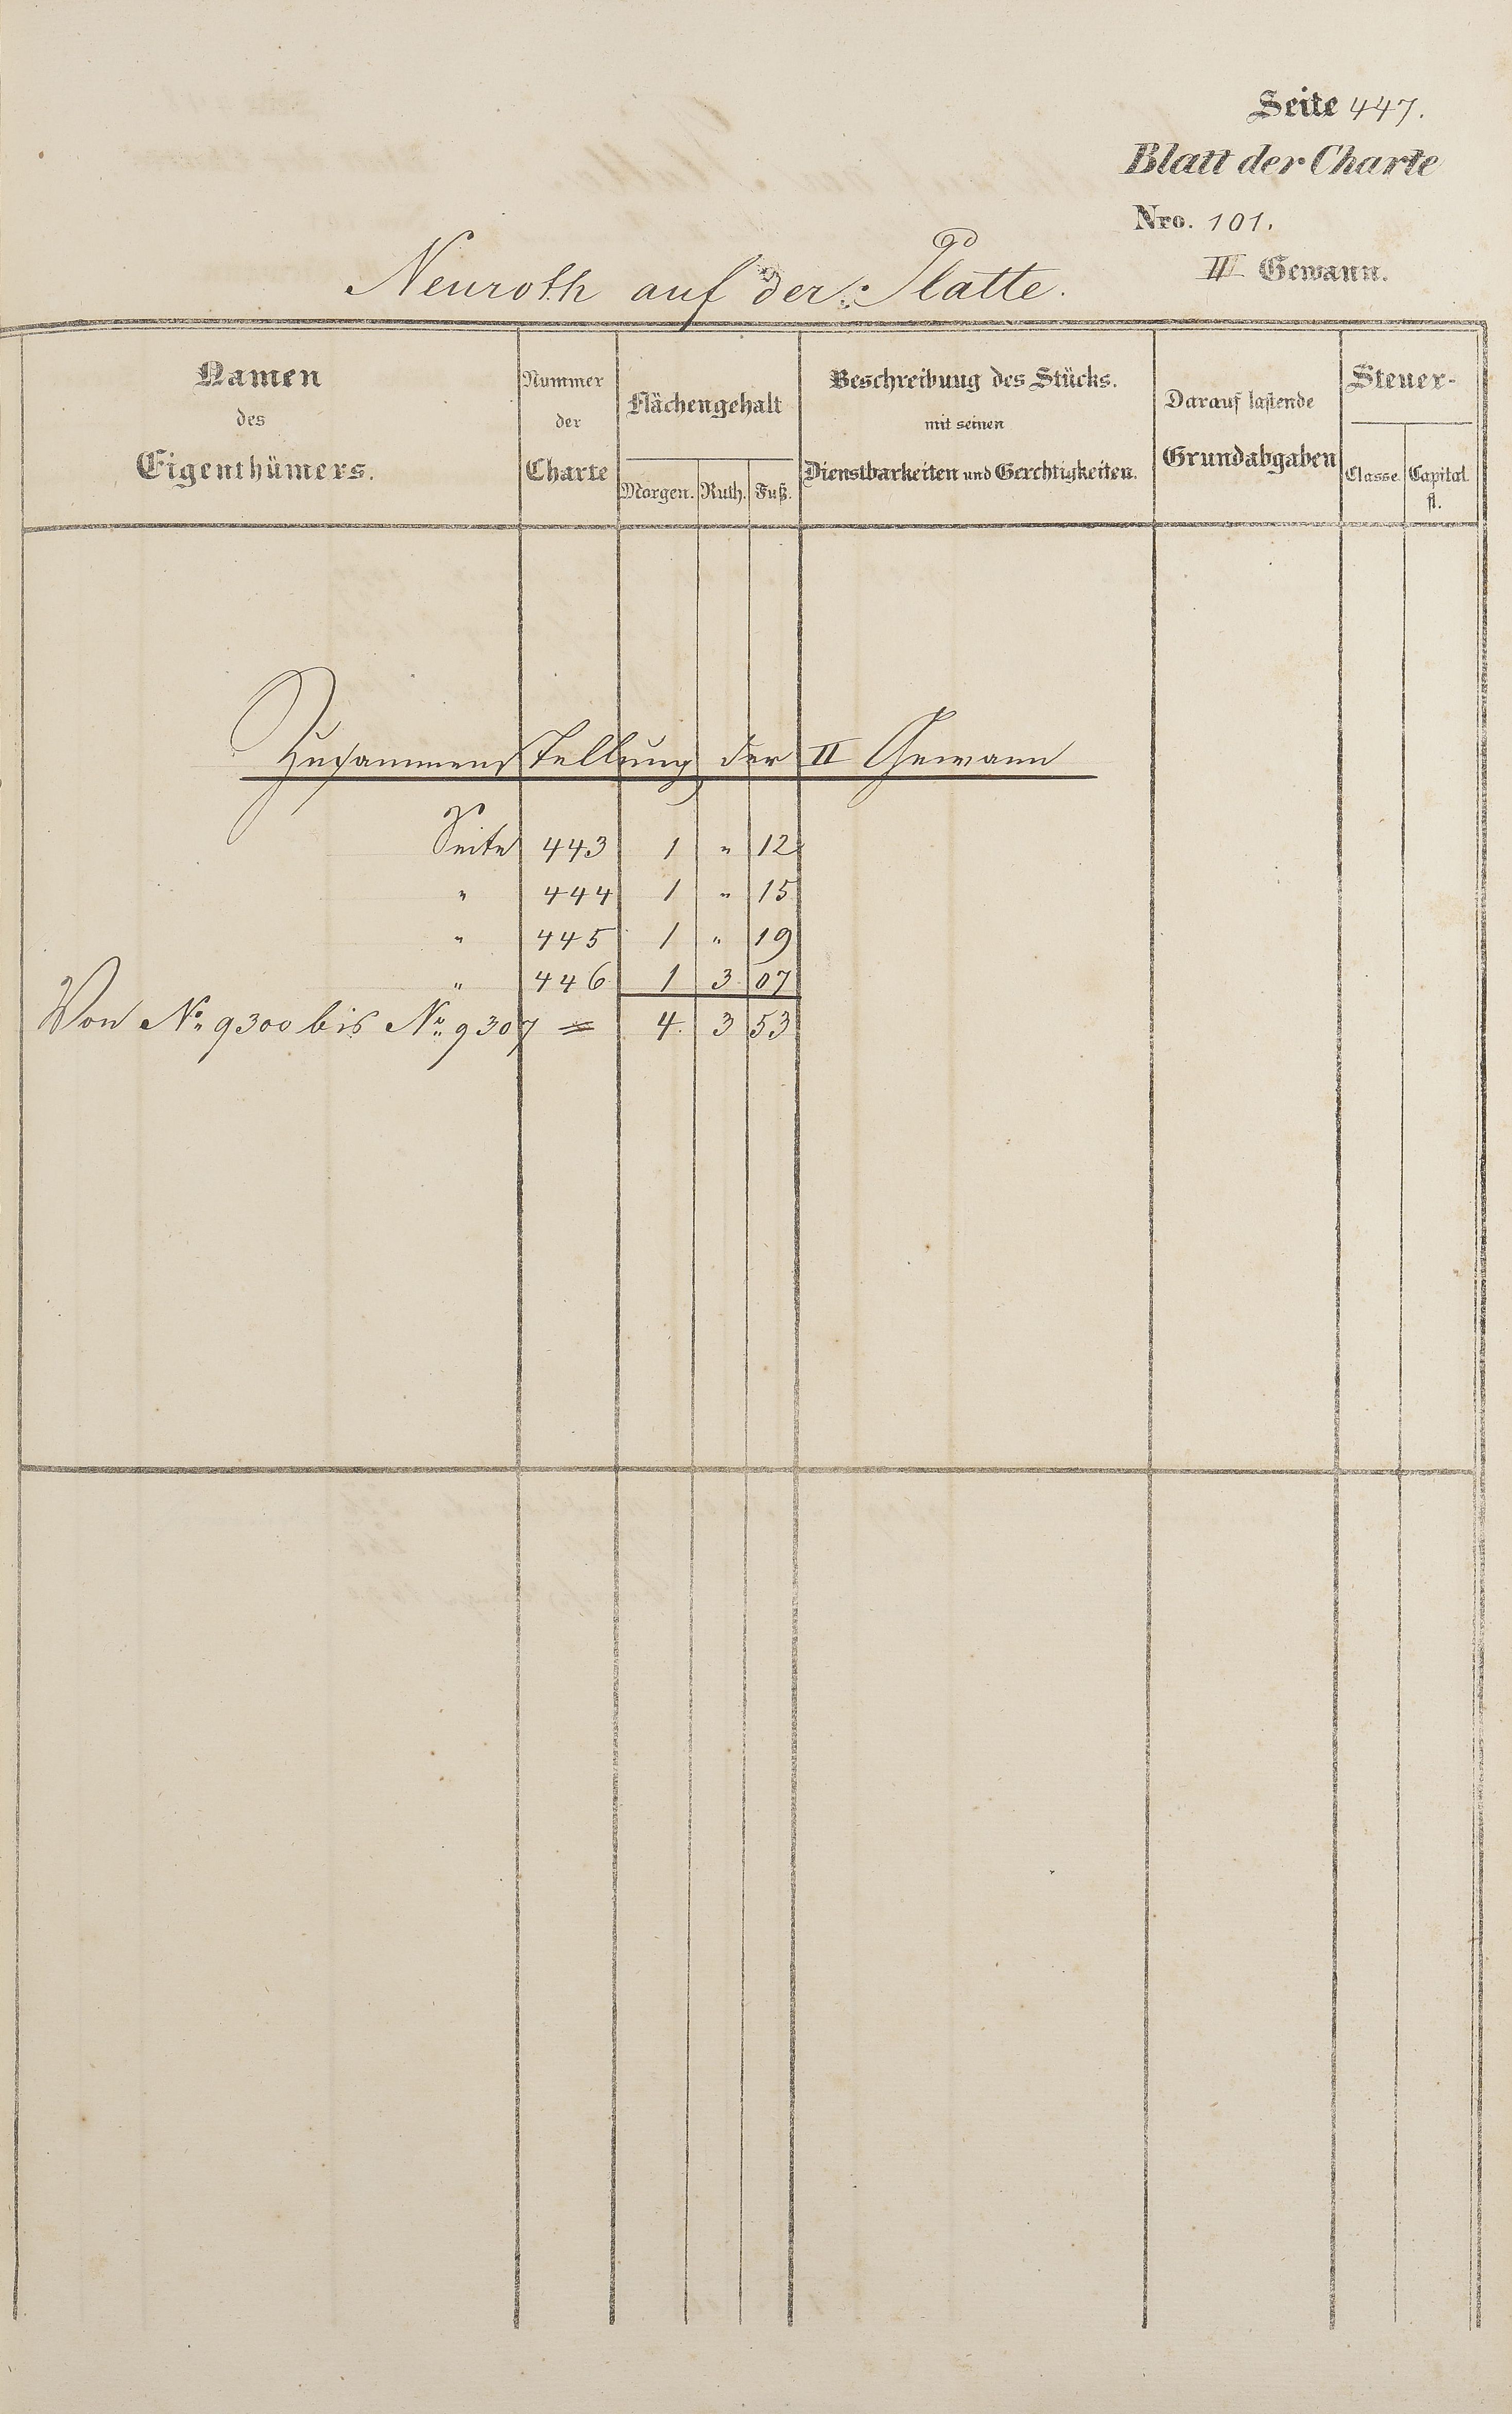 Seite 447.
Blatt der Charte
Nro. 101.
II Gewann.
Neuroth auf der Platte.
Namen des Eigenthümers.
Nummer der Charte
Flächengehalt
Morgen. Ruth. Fuß.
Beschreibung des Stücks.
mit seinen
Dienstbarkeiten und Gerechtigkeiten.
Darauf lastende
Grundabgaben
Steuer-
Classe. Capital fl.
Zusammenstellung der II Gewann
Seite 443 1 " 12
" 444 1 " 15
" 445 1 " 19
" 446 1 3 07
Von No. 9300 bis No. 9307 = 4. 3 53